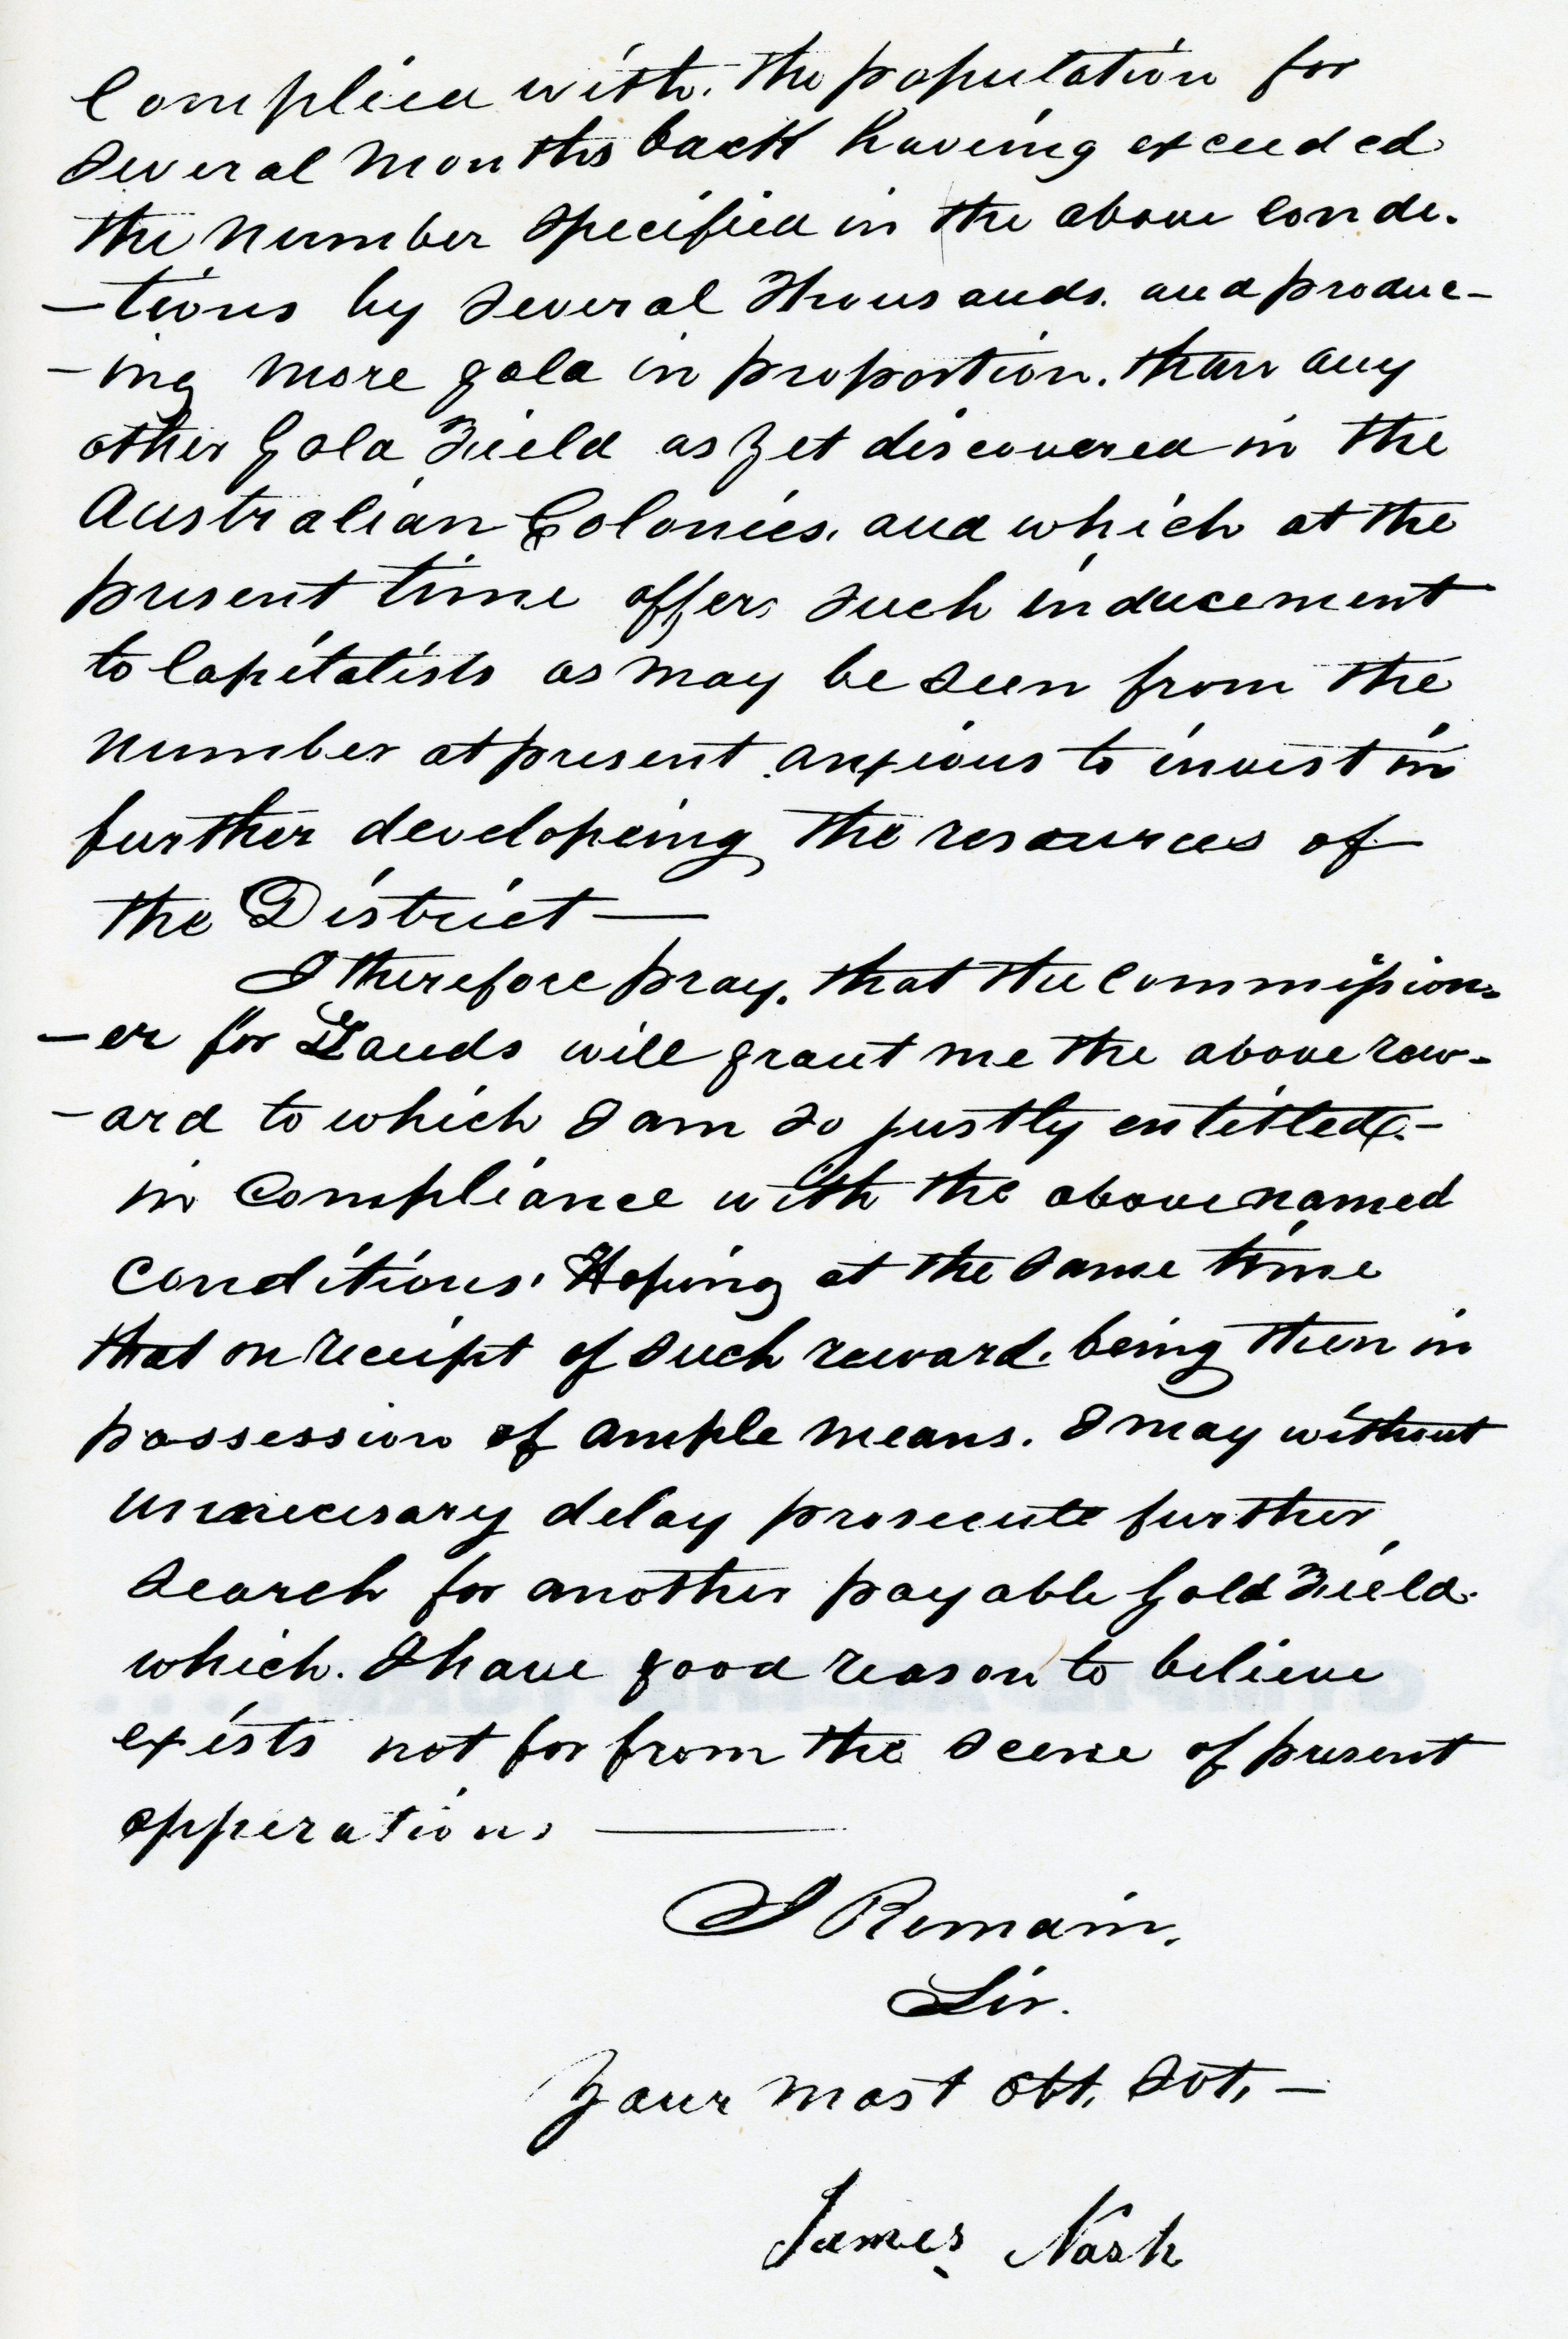 Complied with. the population for
several months back having exceeded
the number specified in the above condi-
-tions by several thousands. and produc-
-ing more gold in proportion. than any
other Gold Field as yet discovered in the
Australian Colonies. and which at the
present time offers such inducement
to Capitalists as may be seen from the
number at present anxious to invest in
further developeing the resources of
the District —
I therefore pray. that the Commission-
-er for Lands will grant me the above rew-
-ard to which I am so justly entitled.-
in Compliance with the above named
Conditions. Hoping at the same time
that on receipt of such reward. being then in
possession of ample means. I may without
unnecesary delay prosecute further
search for another payable Gold Field.
which. I have good reason to believe
exists not far from the scene of present
opperations ——
I Remain.
Sir.
Your most obt, svt, —
James Nash